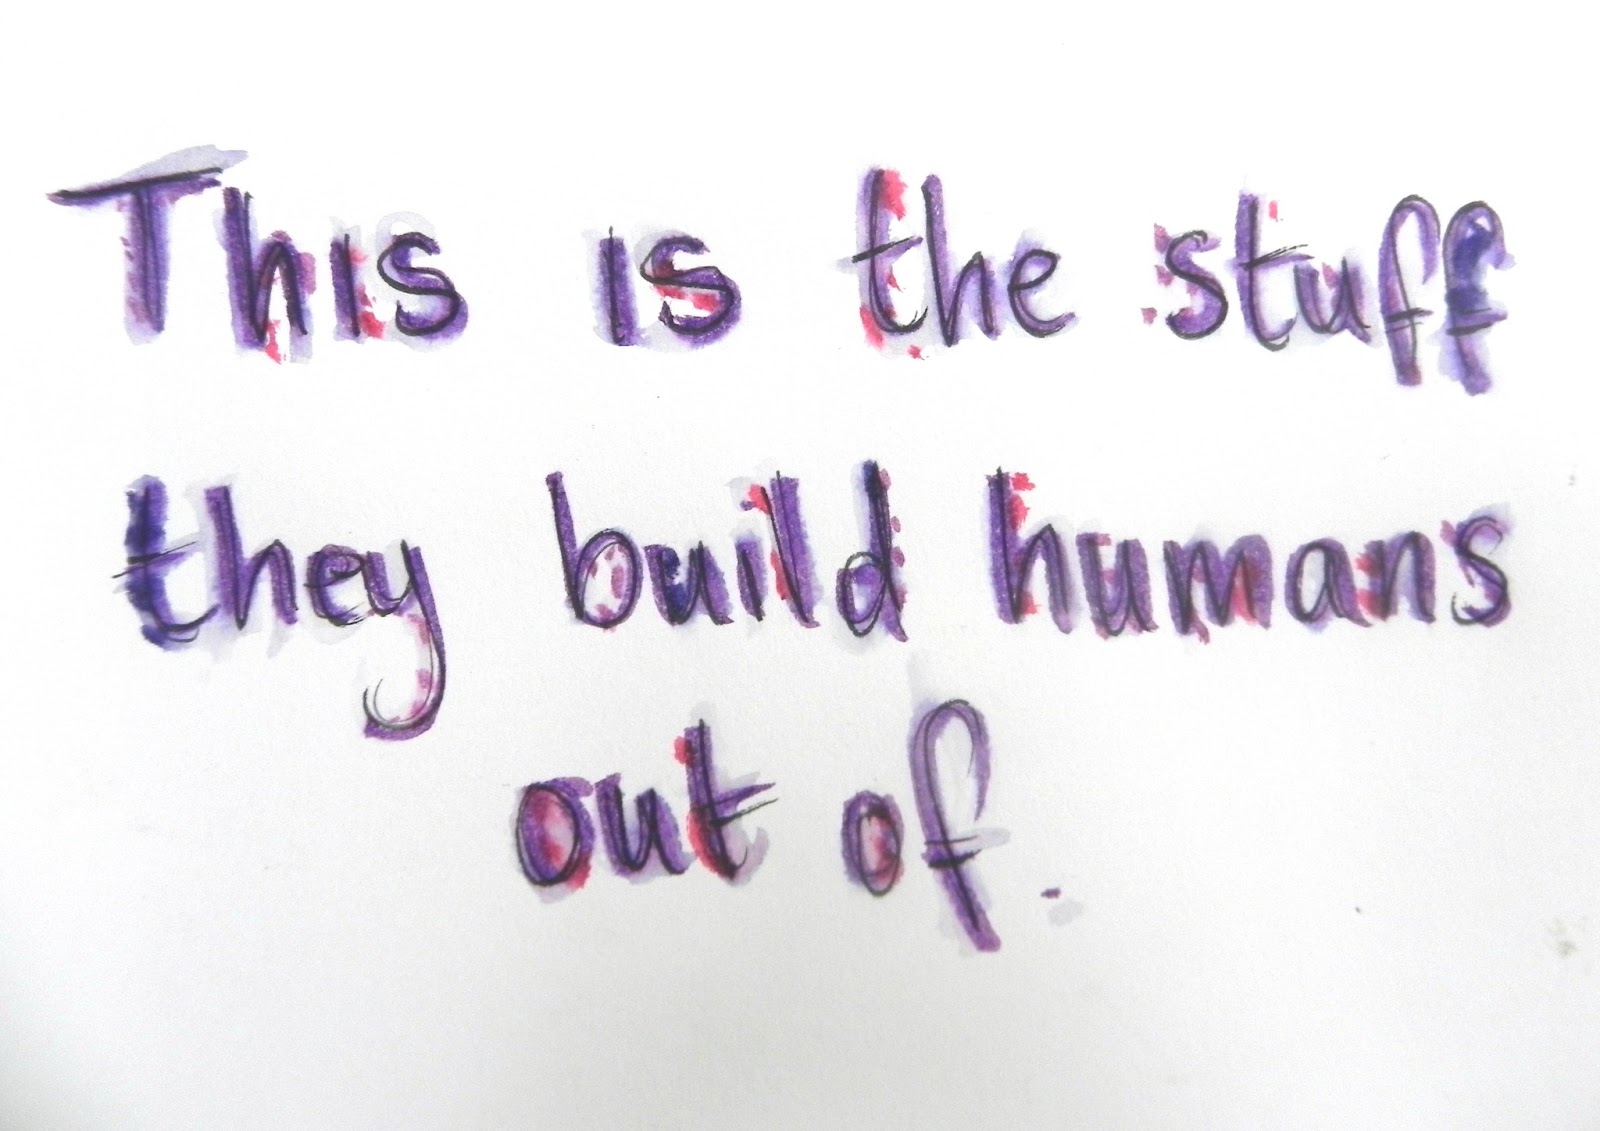 This is the stuff
they build humans
out of.